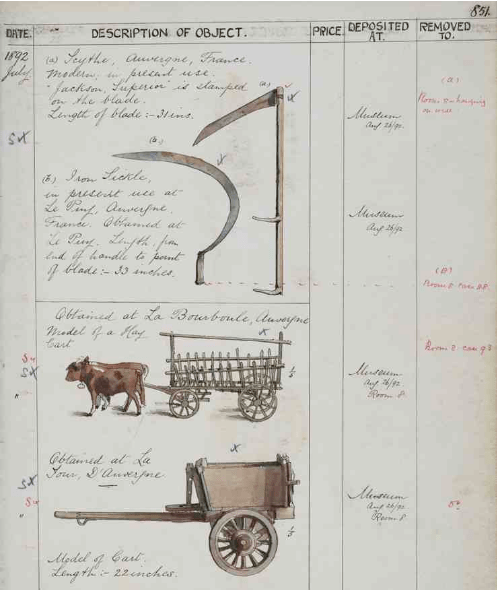 851.
DATE. DESCRIPTION OF OBJECT. PRICE. DEPOSITED AT. REMOVED TO.
1892
July
(a) Scythe, Auvergne, France.
Modern, in present use.
"Jackson, Superior" is stamped
on the blade.
Length of blade :- 31 ins.
(a)
(a)
Museum
Aug 26/92.
SX
(b)
(b) Iron Sickle,
in present use at
Le Puy, Auvergne,
France. Obtained at
Le Puy. Length, from
end of handle to point
of blade :- 33 inches.
Museum
Aug 26/92.
Obtained at La Bourboule, Auvergne
Model of a Hay
Cart
SX
"
Museum
Aug 26/92.
Room 8.
Obtained at La
Tour, D'Auvergne
SX
"
Museum
Aug 26/92.
Room 8
Model of Cart.
Length :- 22 inches.